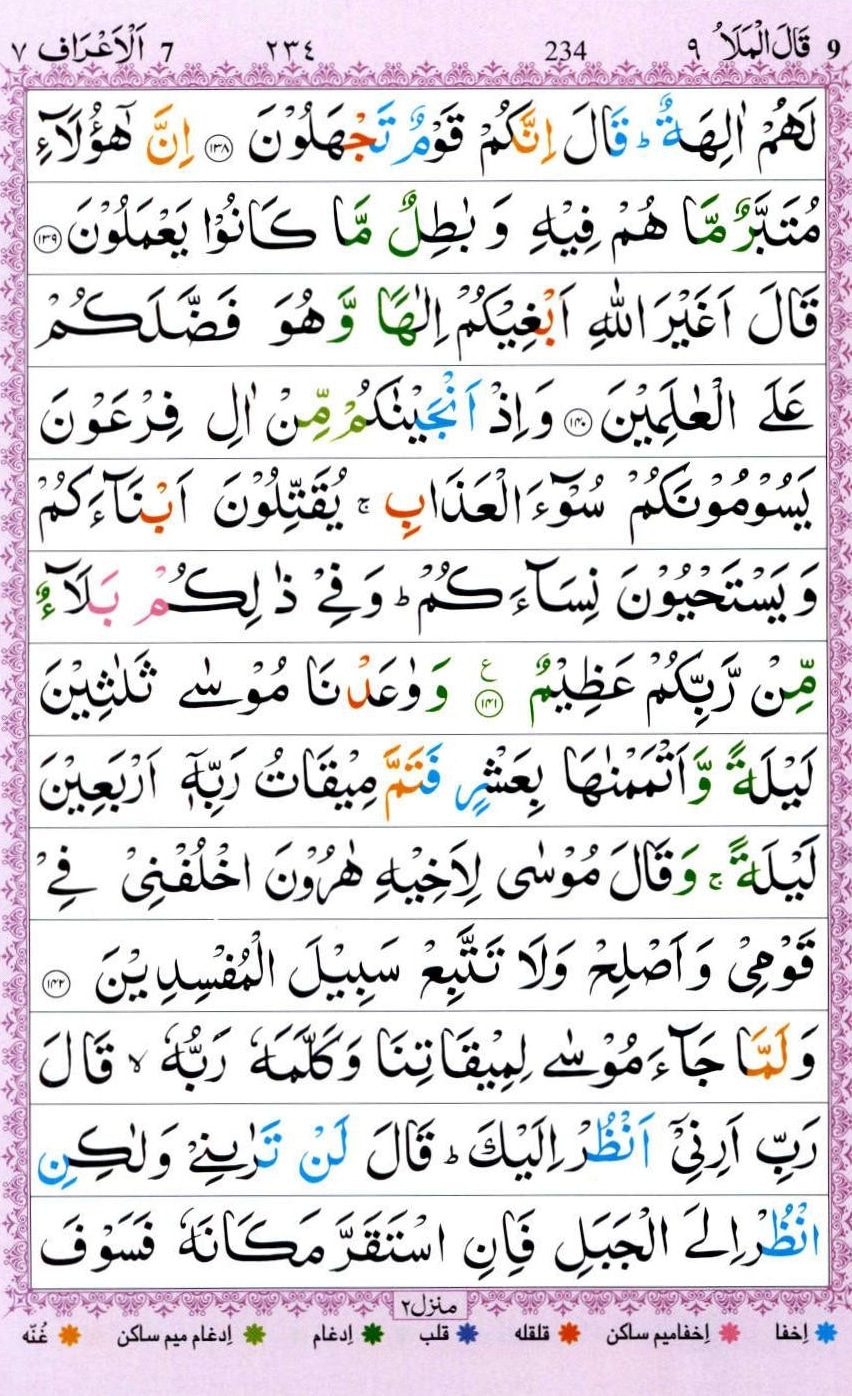 9 قَالَ الْمَلَاُ ٩ 234 ٢٣٤ 7 اَلْاَعْرَاف ٧
لَهُمْ اٰلِهَةٌ ؕ قَالَ اِنَّكُمْ قَوْمٌ تَجْهَلُوْنَ ۝۱۳۸ اِنَّ هٰٓؤُلَآءِ
مُتَبَّرٌ مَّا هُمْ فِيْهِ وَ بٰطِلٌ مَّا كَانُوْا يَعْمَلُوْنَ ۝۱۳۹
قَالَ اَغَيْرَ اللّٰهِ اَبْغِيْكُمْ اِلٰهًا وَّ هُوَ فَضَّلَكُمْ
عَلَى الْعٰلَمِيْنَ ۝۱۴۰ وَ اِذْ اَنْجَيْنٰكُمْ مِّنْ اٰلِ فِرْعَوْنَ
يَسُوْمُوْنَكُمْ سُوْٓءَ الْعَذَابِ ۚ يُقَتِّلُوْنَ اَبْنَآءَكُمْ
وَ يَسْتَحْيُوْنَ نِسَآءَكُمْ ؕ وَ فِيْ ذٰلِكُمْ بَلَآءٌ
مِّنْ رَّبِّكُمْ عَظِيْمٌ ۝۱۴۱ ع وَ وٰعَدْنَا مُوْسٰى ثَلٰثِيْنَ
لَيْلَةً وَّ اَتْمَمْنٰهَا بِعَشْرٍ فَتَمَّ مِيْقَاتُ رَبِّهٖٓ اَرْبَعِيْنَ
لَيْلَةً ۚ وَ قَالَ مُوْسٰى لِاَخِيْهِ هٰرُوْنَ اخْلُفْنِيْ فِيْ
قَوْمِيْ وَ اَصْلِحْ وَ لَا تَتَّبِعْ سَبِيْلَ الْمُفْسِدِيْنَ ۝۱۴۲
وَ لَمَّا جَآءَ مُوْسٰى لِمِيْقَاتِنَا وَ كَلَّمَهٗ رَبُّهٗ ۙ قَالَ
رَبِّ اَرِنِيْٓ اَنْظُرْ اِلَيْكَ ؕ قَالَ لَنْ تَرٰىنِيْ وَ لٰكِنِ
انْظُرْ اِلَى الْجَبَلِ فَاِنِ اسْتَقَرَّ مَكَانَهٗ فَسَوْفَ
منزل۲
اِخفا اِخفامیم ساکن قلقله قلب اِدغام اِدغام میم ساکن غُنّه